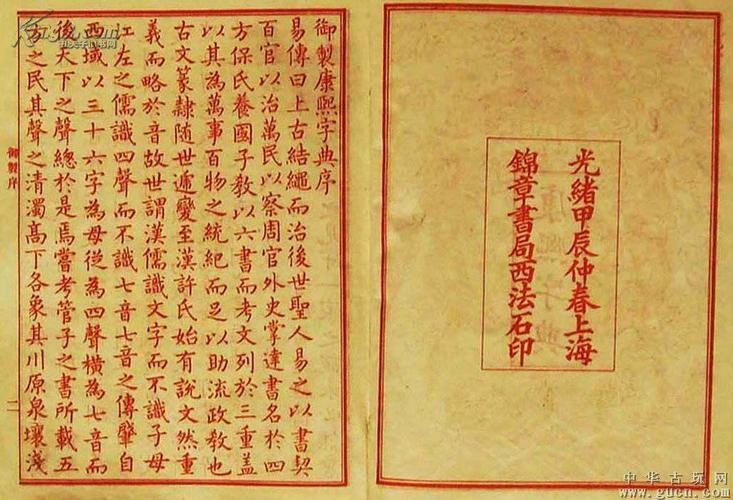 光緒甲辰仲春上海
錦章書局西法石印
御製康熙字典序
易傳曰上古結繩而治後世聖人易之以書契
百官以治萬民以察周官外史掌達書名於四
方保氏養國子教以六書而考文列於三重蓋
以其為萬事百物之統紀而足以助流政教也
古文篆隸隨世遞變至漢許氏始有說文然重
義而略於音故世謂漢儒識文字而不識子母
江左之儒識四聲而不識七音七音之傳肇自
西域以三十六字為母從為四聲橫為七音而
後天下之聲總於是焉嘗考管子之書所載五
方之民其聲之清濁高下各象其川原泉壤淺
御製序
二
中华古玩网
www.gucn.com